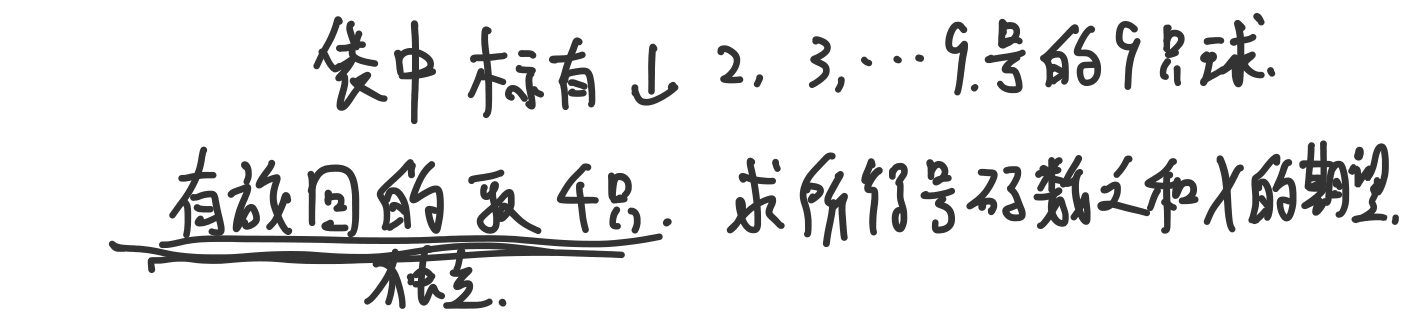 袋中标有1,2,3,…9.号的9只球.
有放回的取4只.求所得号码数之和X的期望.
独立.